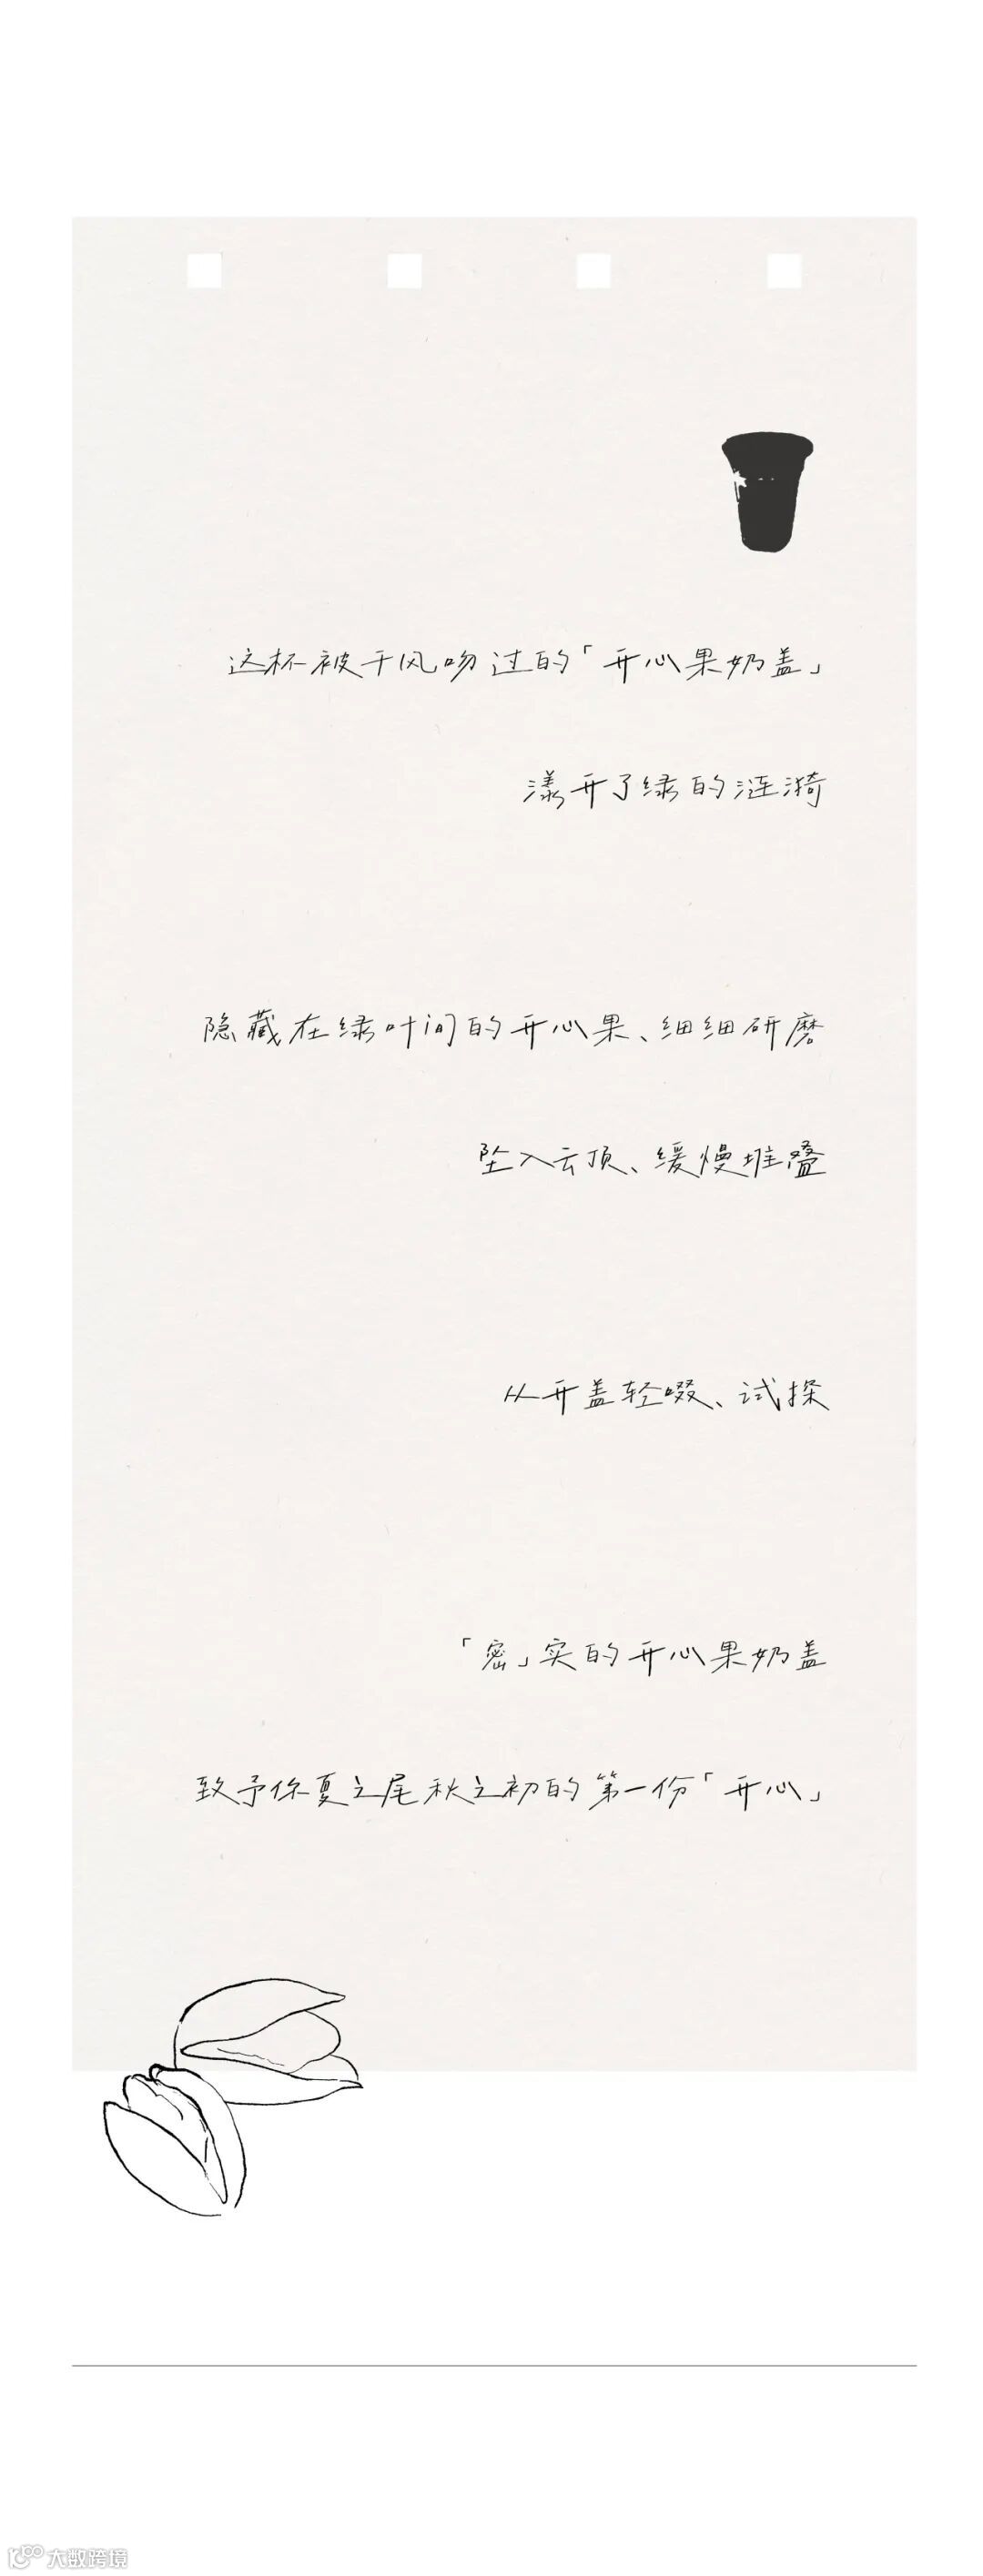 这杯被干风吻过的「开心果奶盖」
漾开了绿的涟漪
隐藏在绿叶间的开心果、细细研磨
坠入云顶、缓慢堆叠
从开盖轻啜、试探
「密」实的开心果奶盖
致予你夏之尾秋之初的第一份「开心」
大数跨境